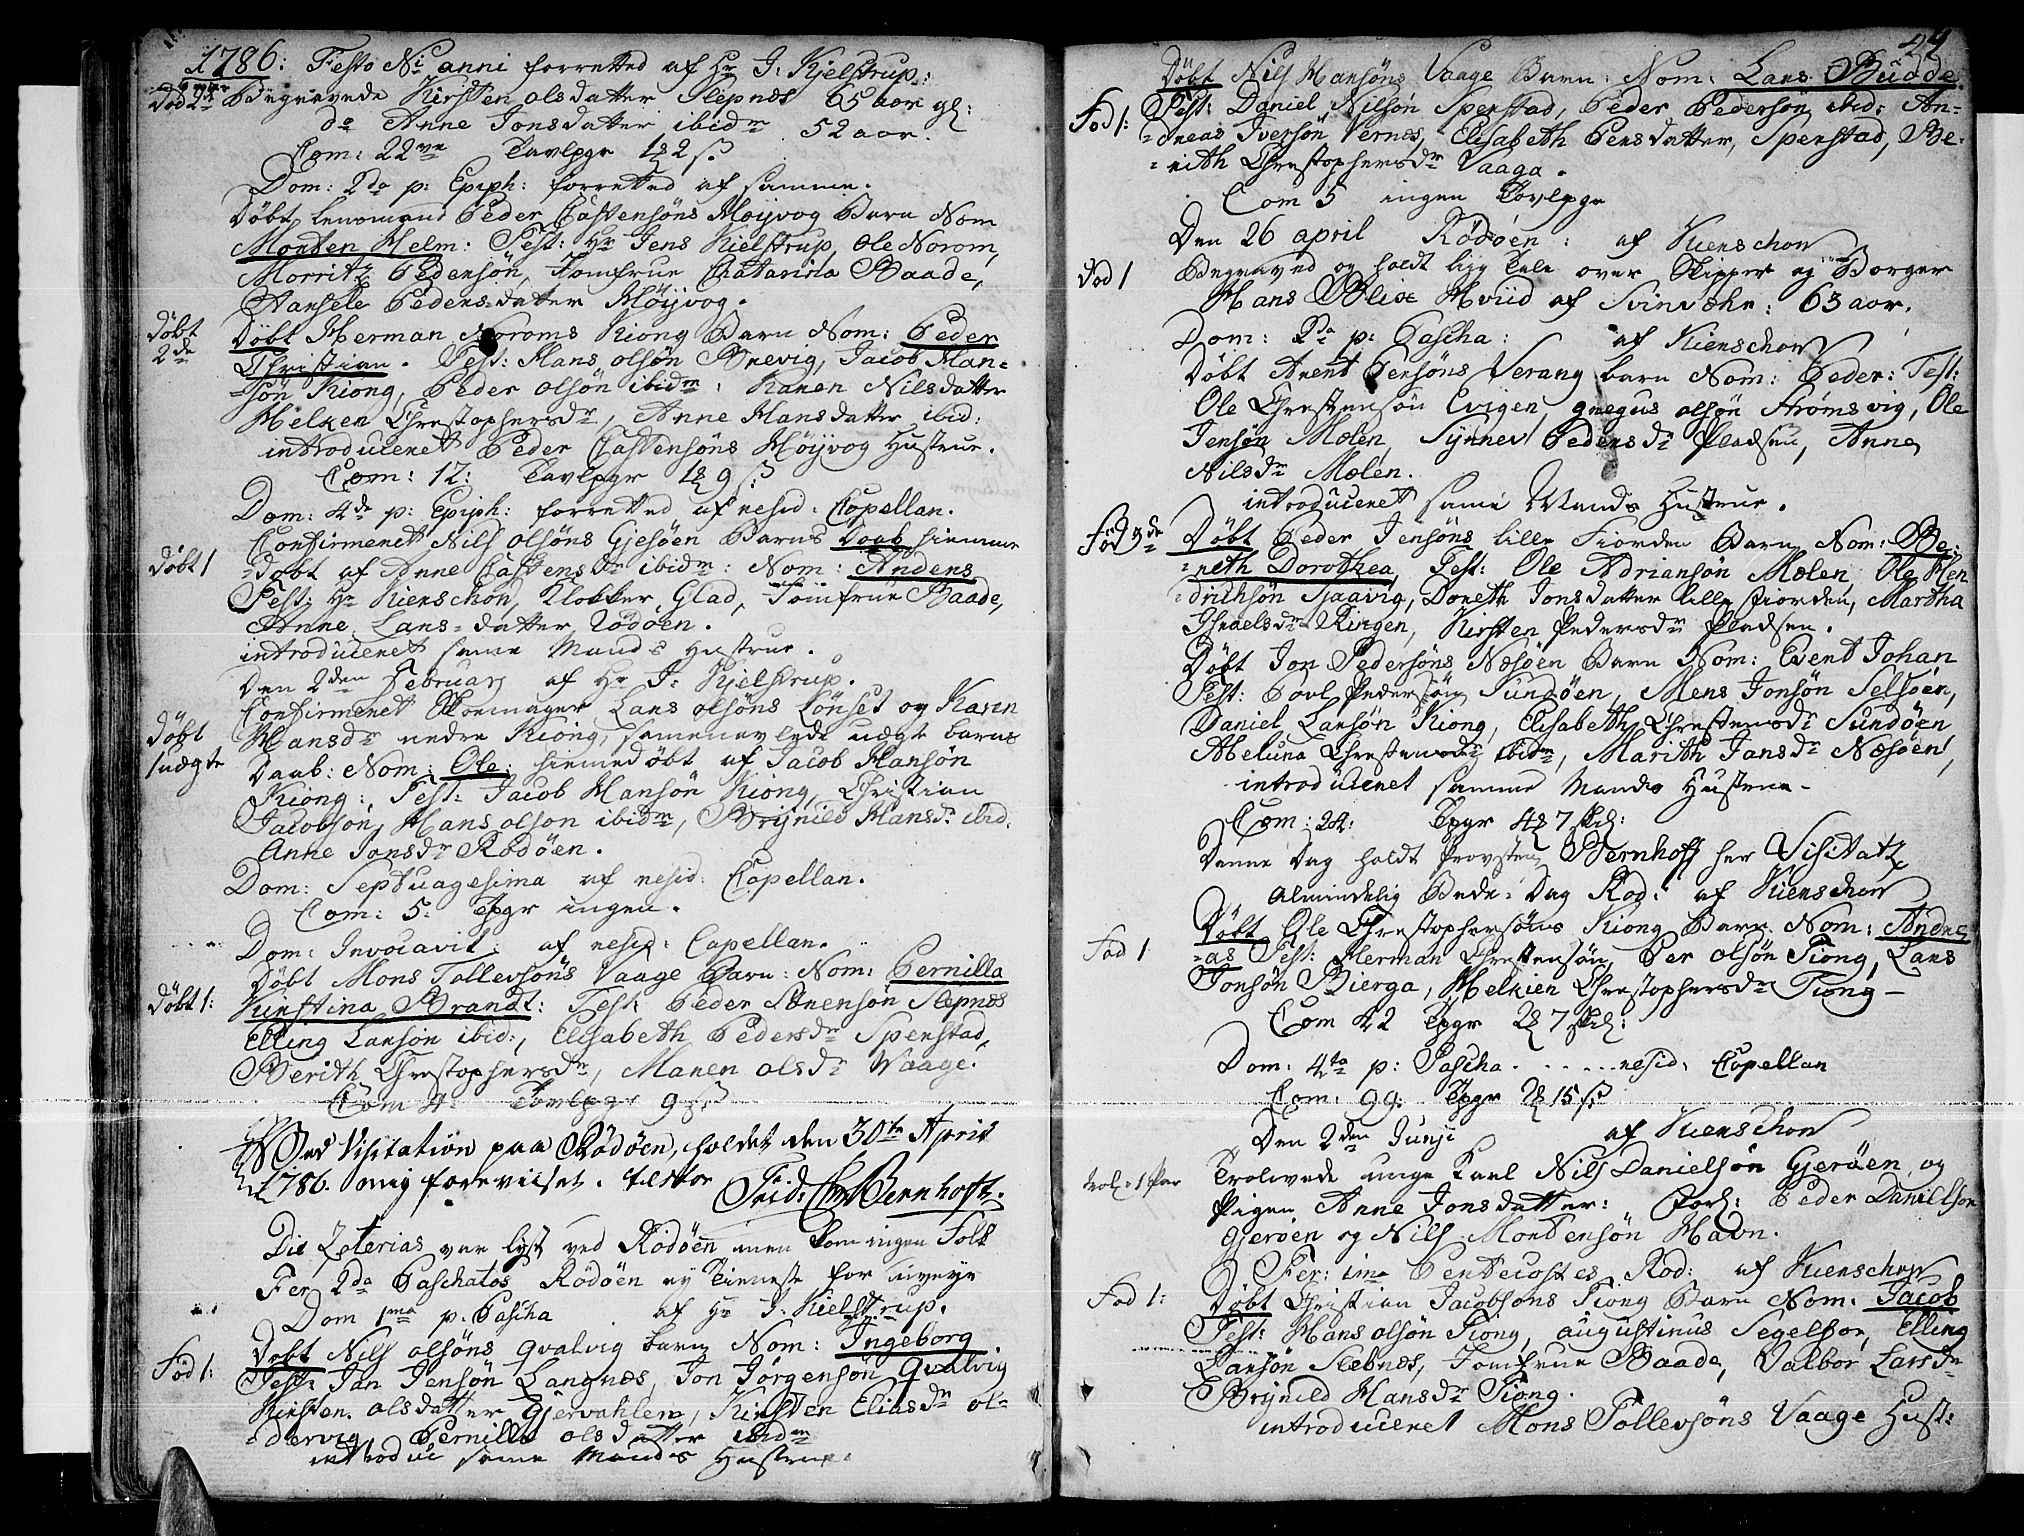 1786: Festo Ni anni forretted af Hr J: Kjelstrup:
Död 2de Begravede Kirsten olsdatter Slepnes 65 aar gl:
do Anne Jonsdatter ibidm 52 aar.
Com: 22ve Tavlpgr 1 2 s
Dom: 2da p: Epiph: forretted af samme.
Döbt Lensmand Peder Castensöns Möyvog Barn Nom
Morten Helm: Test: Hr Jens Kielstrup, Ole Norom,
Morritz Pedersön, Jomfrue Chatarina Baade,
Pedersdatter Möyvog.
Döbt 2de
Döbt Herman Noroms Kiong Barn Nom: Peder
Christian. Test: Hans olsön Brevig, Jacob Han-
-sön Kiong, Peder olsön ibidm: Karen Nilsdatter
Melken Chrestophersdr, Anne Hansdatter ibid:
introduceret Peder Castensöns Möyvog Hustrue.
Com: 12: Tavlpgr 1 9 s
Dom: 4de p: Epiph: forretted af resid: Capellan.
Confirmeret Nils olsöns Gjesöen Barns Daab hiemme
Döbt 1
-döbt af Anne Castensdr ibidm: Nom: Anders
Test: Hr Kierschow, Klokker Glad, Jomfrue Baade,
Anne Lars-datter Rödöen.
introduceret samme Mands Hustrue.
Den 2den Februarj af Hr J: Kjelstrup.
Confirmeret Skomager Lars olsöns Lönset og Karen
Döbt 1 uægte
Hansdr nedre Kiong, sammenavlede uægte barns
Daab: Nom: Ole: hiemedöbt af Jacob Hansön
Kiong: Test: Jacob Hansön Kiong, Christian
Jacobsön, Hans olsön ibidm, Brynild Hansdr ibid.
Anne Jonsdr Rödöen.
Dom: Septuagesima af resid: Capellan.
Com: 5: Tpgr ingen.
Dom: Invocavit: af resid: Capellan.
Döbt Mons Tollevsöns Vaage Barn: Nom: Pernilla
Döbt 1:
Kirstina Brandt: Test: Peder Sörensön Slepnes
Elling Larsön ibid:, Elisabeth Pedersdr Spenstad,
Berith Chrestophersdr, Maren olsdr Vaage.
Com 4: Tavlpgr 9 s
Ved Visitation paa Rödöen, holdet den 30te April
1786. mig foreviiset. testor Frid: Chr Bernhoft.
Die Zoterias var lyst ved Rödöen men kom ingen Folk
Fer 2da Paschatos Rödöen ey Tieneste for uveyr
Dom 1ma p. Pascha af Hr J. Kielstrup.
Föd 1:
Döbt Nils olsöns Qvalvig barn Nom: Ingeborg
Test: Jan Jensön Langnes, Jon Jörgensön Qvalvig
Kirsten olsdatter Gjervahlen, Kirsten Eliasdr ol-
-dervig, Pernilla olsdatter ibidm
introdu samme Mands Hustrue.
24
Döbt Nils Hansöns Vaage Barn: Nom: Lars Budde
Föd 1:
Test: Daniel Nilsön Spenstad, Peder Pedersön ibid: An-
-dreas Iversön Vernes, Elisabeth Persdatter, Spenstad, Be-
-rith Chrestophersdr Vaaga.
Com 5 ingen Tavlpgr
Den 26 april Rödöen: af Kierschow
Död 1
Begraved og holdt liig Tale over Skipper og Borger
Hans Blix Hviid af Svinvær: 63 aar.
Dom: 2da p: Pascha: af Kierschow
Döbt Arent Persöns Verang barn Nom: Peder: Test:
Ole Chrestensön Evigen, gregus olsön Strömsvig, Ole
Jensön Mælen, Synnev Pedersdr Pladsen, Anne
Nilsdr Mælen.
introduceret samme Mands Hustrue.
Föd 3de
Döbt Peder Jensöns lille Fiorden Barn Nom: Be-
-reth Dorothea, Test: Ole Adriansön Mælen, Ole Hen
-drichsön Sjaavig, Doreth Jonsdatter lille Fiorden, Martha
Isralsdr Ringen, Kirsten Pedersdr Pladsen.
Döbt Jon Pedersöns Næsöen Barn Nom: Evert Johan
Test: Povl Pedersön Sundöen, Mens Jonsön Selsöen,
Daniel Larsön Kiong, Elisabeth Chrestensdr Sundöen
Abeluna Chrestensdr ibidm, Marith Jansdr Næsöen,
introduceret samme Mands Hustrue.
Com: 24: Tpgr 4 7 sk:
Denne Dag holdt Provsten Bernhoff her Visitatz
Almindelig Bede-Dag Röd: af Kierschow
Föd 1
Döbt Ole Chrestophersöns Kiong Barn Nom: Andre-
-as Test: Herman Chrestensön, Per olsön Tiong, Lars
Jonsön Bierga, Melkien Chrestophersdr Tiong
Com 42 Tpgr 2 7 sk:
Dom: 4ta p: Pascha . . . . . . resid: Capellan
Com: 99: Tpgr 2 15 s
Den 2den Junji af Kierschow
trol: 1 Par
Trolovede unge Karl Nils Danielsön Gjeröen, og
Pigen Anne Jonsdatter: Forl: Peder Danielsön
Gjeröen og Nils Mortensön Havn.
Fer: ima Pentecostes Röd: af Kierschow
Föd 1:
Döbt Christian Jacobsöns Tiong Barn Nom: Jacob
Test: Hans olsön Tiong, augustinus Segelfor, Elling
Larsön Slebnes, Jomfrue Baade, Valbor Larsdr
Brynild Hansdr Tiong.
introduceret Mons Tollevsöns Vaage Hust: